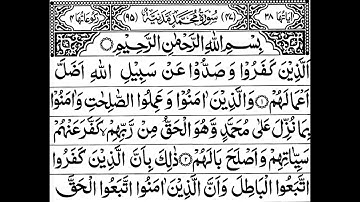 اٰیاتھا ۳۸ (۴۷) سُوْرَةُ مُحَمَّدٍ مَّدَنِيَّةٌ (۹۵) رکوعاتھا ۴
بِسْمِ اللّٰهِ الرَّحْمٰنِ الرَّحِيْمِ
اَلَّذِيْنَ كَفَرُوْا وَ صَدُّوْا عَنْ سَبِيْلِ اللّٰهِ اَضَلَّ
اَعْمَالَهُمْ ۝۱ وَ الَّذِيْنَ اٰمَنُوْا وَ عَمِلُوا الصّٰلِحٰتِ وَ اٰمَنُوْا
بِمَا نُزِّلَ عَلٰى مُحَمَّدٍ وَّ هُوَ الْحَقُّ مِنْ رَّبِّهِمْ ۙ كَفَّرَ عَنْهُمْ
سَيِّاٰتِهِمْ وَ اَصْلَحَ بَالَهُمْ ۝۲ ذٰلِكَ بِاَنَّ الَّذِيْنَ كَفَرُوا
اتَّبَعُوا الْبَاطِلَ وَ اَنَّ الَّذِيْنَ اٰمَنُوا اتَّبَعُوا الْحَقَّ